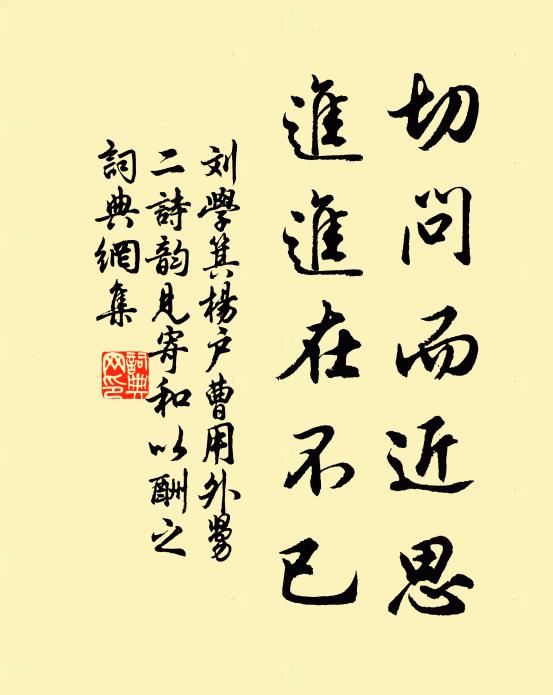 切问而近思
進進在不已
刘學箕楊户曹用外舅
二詩韵見寄和以酬之
詞典網集
詞典网印